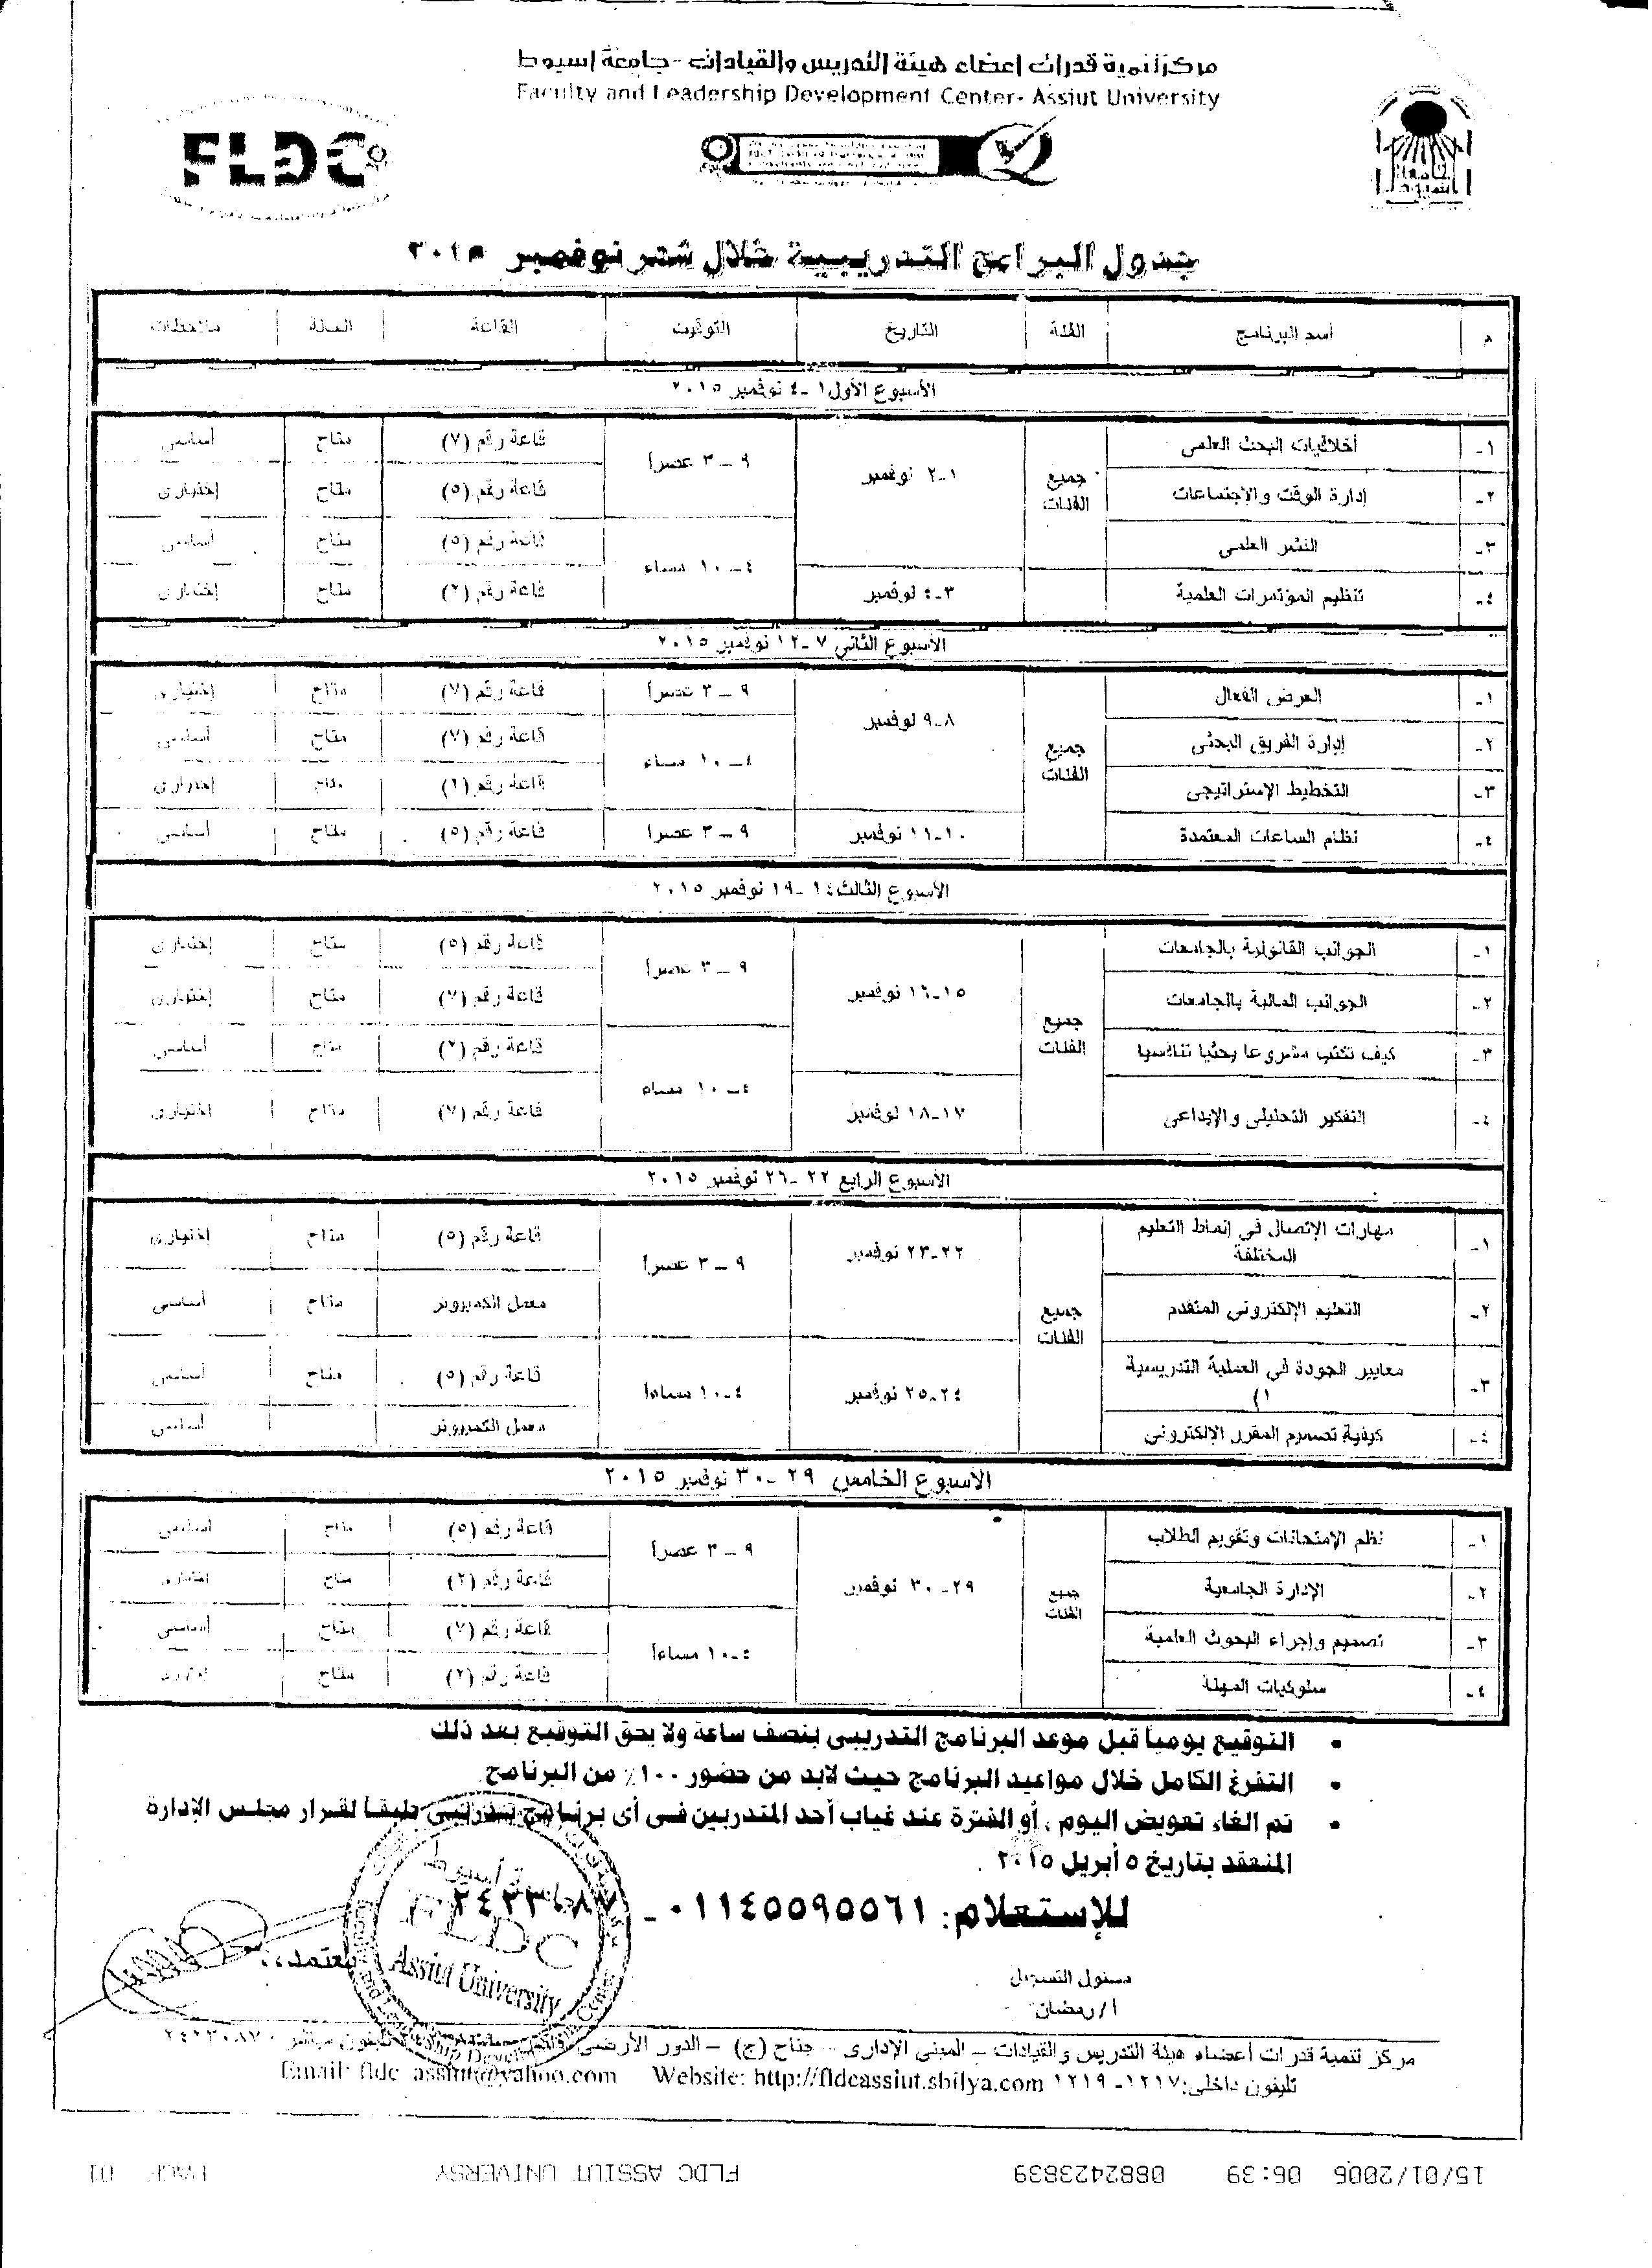 مركز تنمية قدرات أعضاء هيئة التدريس والقيادات - جامعة أسيوط
Faculty and Leadership Development Center- Assiut University
FLDC
جدول البرامج التدريبية خلال شهر نوفمبر ٢٠١٥
م أسم البرنامج الفئة التاريخ التوقيت القاعة الحالة ملاحظات
الأسبوع الأول ١ -٤ نوفمبر ٢٠١٥
١- أخلاقيات البحث العلمى جميع الفئات ١-٢ نوفمبر ٩ – ٣ عصرا قاعة رقم (٧) متاح أساسى
٢- إدارة الوقت والإجتماعات قاعة رقم (٥) متاح إختيارى
٣- النشر العلمى ٤ – ١٠ مساء قاعة رقم (٥) متاح أساسى
٤- تنظيم المؤتمرات العلمية ٣-٤ نوفمبر قاعة رقم (٢) متاح إختيارى
الأسبوع الثاني ٧ -١٢ نوفمبر ٢٠١٥
١- العرض الفعال جميع الفئات ٨-٩ نوفمبر ٩ – ٣ عصرا قاعة رقم (٧) متاح إختيارى
٢- إدارة الفريق البحثى ٤ – ١٠ مساء قاعة رقم (٧) متاح أساسى
٣- التخطيط الإستراتيجى قاعة رقم متاح إختيارى
٤- نظام الساعات المعتمدة ١٠-١١ نوفمبر ٩ – ٣ عصرا قاعة رقم (٥) متاح أساسى
الأسبوع الثالث ١٤ -١٩ نوفمبر ٢٠١٥
١- الجوانب القانونية بالجامعات جميع الفئات ١٥-١٦ نوفمبر ٩ – ٣ عصرا قاعة رقم (٥) متاح إختيارى
٢- الجوانب المالية بالجامعات قاعة رقم (٧) متاح إختيارى
٣- كيف تكتب مشروعا بحثيا تنافسيا ٤ – ١٠ مساء قاعة رقم (٢) متاح أساسى
٤- التفكير التحليلى والإبداعى ١٧-١٨ نوفمبر قاعة رقم (٧) متاح إختيارى
الأسبوع الرابع ٢٢ -٢٦ نوفمبر ٢٠١٥
١- مهارات الإتصال فى إنماط التعليم المختلفة جميع الفئات ٢٢-٢٣ نوفمبر ٩ – ٣ عصرا قاعة رقم (٥) متاح إختيارى
٢- التعليم الإلكترونى المتقدم معمل الكمبيوتر متاح أساسى
٣- معايير الجودة فى العملية التدريسية ٢٤-٢٥ نوفمبر ٤-١٠ مساءا قاعة رقم (٥) متاح أساسى
٤- كيفية تصميم المقرر الإلكترونى معمل الكمبيوتر أساسى
الأسبوع الخامس ٢٩ -٣٠ نوفمبر ٢٠١٥
١- نظم الإمتحانات وتقويم الطلاب جميع الفئات ٢٩-٣٠ نوفمبر ٩ – ٣ عصرا قاعة رقم (٥) متاح أساسى
٢- الإدارة الجامعية قاعة رقم (٢) متاح إختيارى
٣- تصميم وإجراء البحوث العلمية ٤-١٠ مساءا قاعة رقم (٧) متاح أساسى
٤- سلوكيات المهنة قاعة رقم (٢) متاح
• التوقيع يومياً قبل موعد البرنامج التدريبى بنصف ساعة ولا يحق التوقيع بعد ذلك
• التفرغ الكامل خلال مواعيد البرنامج حيث لابد من حضور ١٠٠٪ من البرنامج
• تم الغاء تعويض اليوم ، أو الفترة عند غياب أحد المتدربين فى أى برنامج تدريبى طبقا لقرار مجلس الإدارة
المنعقد بتاريخ ٥ أبريل ٢٠١٥ .
للإستعلام: ٠١١٤٥٥٩٥٥٦١ -
جامعة أسيوط
FLDC
Assiut University
يعتمد،،
مسئول التسجيل
أ/رمضان
مركز تنمية قدرات أعضاء هيئة التدريس والقيادات – المبنى الإدارى – جناح (ج) – الدور الأرضى تليفون مباشر
تليفون داخلى: ١٢١٧- ١٢١٩ Website: http://fldcassiut.sbilya.com Email: fldc_assiut@yahoo.com
15/01/2006 06:39 0882423839 FLDC ASSIUT UNIVERSY PAGE 01